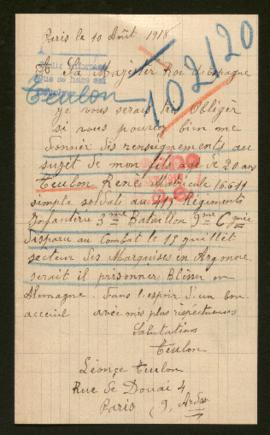 Paris le 10 Août 1918
102120
A Sa Majester Roi d'Espagne
Teulon
je vous serais très Obliger
si vous pouvez bien me
donner des renseignements au
sujet de mon fils age de 20 ans
Teulon Renée Matricule
simple soldats au Régiments
Infanterie 3me Bataillon 9me Cgnie
disparu au Combat le 15 juillet
secteur des Marquises en Argonne
serait il prisonner Blesser en
Allmagne. Dans l'espoir d'un bon
acceuil avec mes plus réspectueuses
Salutations
Teulon
Léonce Teulon
Rue de Douai 4
Paris 9, Ardse